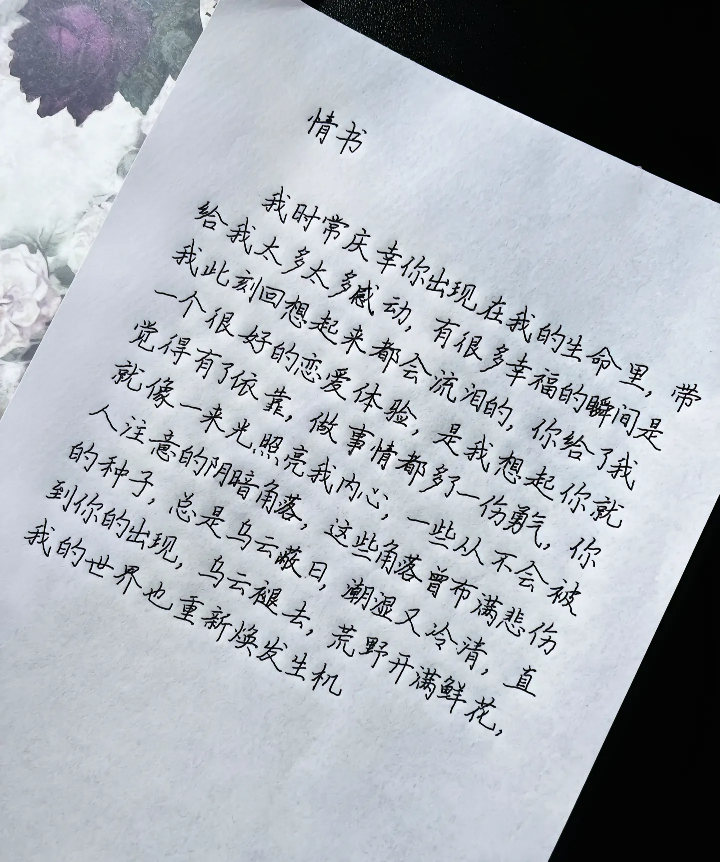 情书
我时常庆幸你出现在我的生命里，带
给我太多太多感动，有很多幸福的瞬间是
我此刻回想起来都会流泪的，你给了我
一个很好的恋爱体验，是我想起你就
觉得有了依靠，做事情都多了一份勇气，你
就像一来光照亮我内心，一些从不会被
人注意的阴暗角落，这些角落曾布满悲伤
的种子，总是乌云蔽日，潮湿又冷清，直
到你的出现，乌云褪去，荒野开满鲜花，
我的世界也重新焕发生机